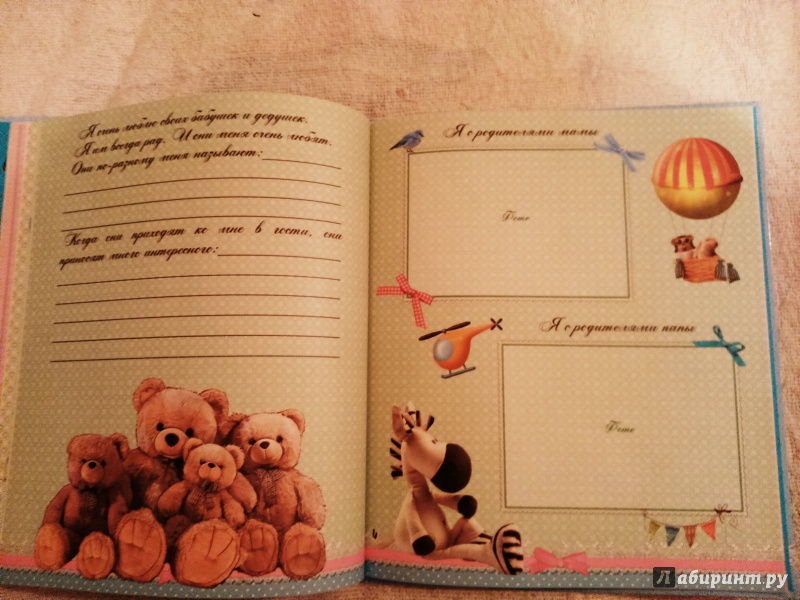 Я очень люблю своих бабушек и дедушек.
Я им всегда рад. И они меня очень любят.
Они по-разному меня называют:
Когда они приходят ко мне в гости, они
приносят много интересного:
Я с родителями мамы
Фото
Я с родителями папы
Фото
Лабиринт.ру